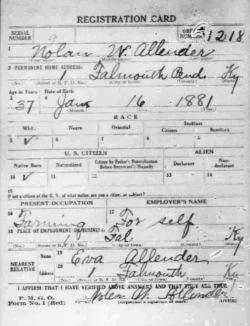 REGISTRATION CARD
SERIAL NUMBER 9 ORDER NUMBER 1218
1 Nolan W. Allender
2 PERMANENT HOME ADDRESS:
1 Falmouth Pend Ky
Age in Years Date of Birth
37 Jan 16 1881
RACE
White Negro Oriental Indian
Citizen Noncitizen
5 ✓
U. S. CITIZEN ALIEN
Native Born Naturalized Citizen by Father's Naturalization Before Registrant's Majority Declarant Non-declarant
10 ✓
15 If not a citizen of the U. S., of what nation are you a citizen or subject?
PRESENT OCCUPATION EMPLOYER'S NAME
16 Farming 17 For self
18 PLACE OF EMPLOYMENT OR BUSINESS:
Fal Ky
NEAREST RELATIVE Name 19 Eva Allender
Address 20 1 Falmouth Ky
I AFFIRM THAT I HAVE VERIFIED ABOVE ANSWERS AND THAT THEY ARE TRUE
P. M. G. O.
Form No. 1 (Red) Nolan W. Allender